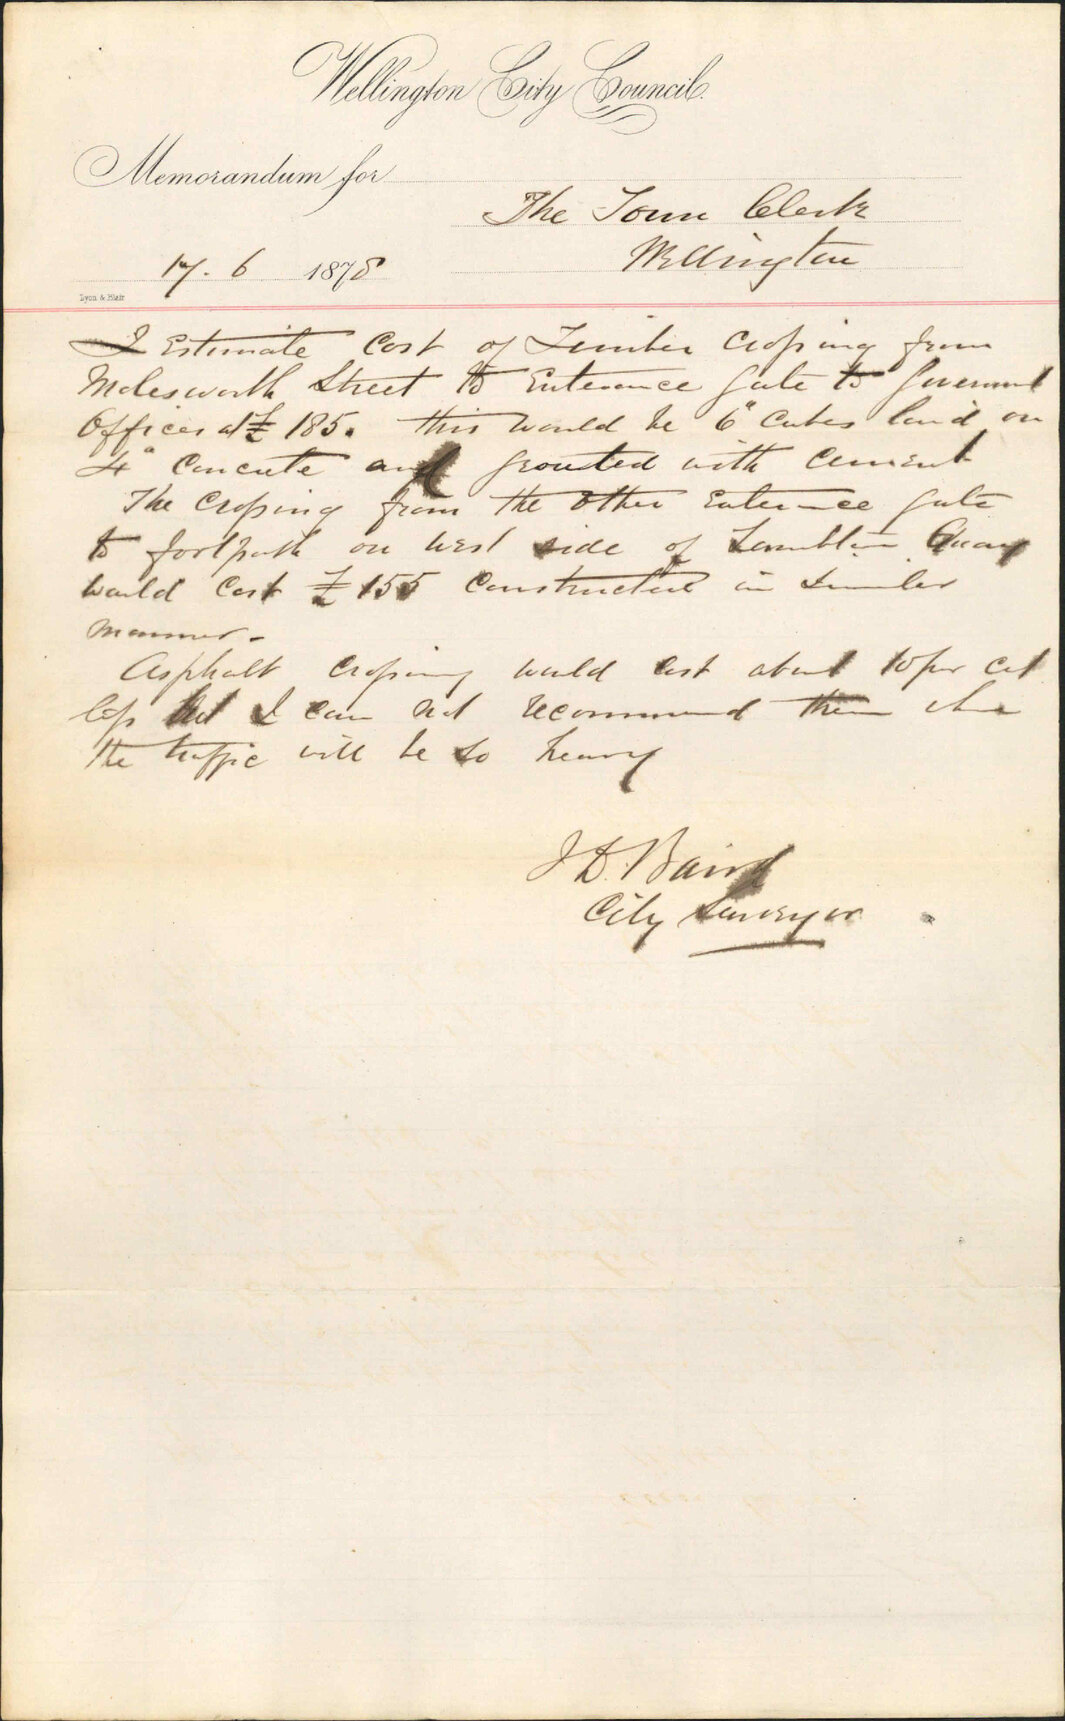 Wellington City Council.
Memorandum for
The Town Clerk
Wellington
17. 6 1878
Lyon & Blair
I Estimate Cost of Timber Crossing from
Molesworth Street to Enterance gate to Goverment
Offices at £ 185. this would be 6" Cubes laid on
4" Concrete and grouted with Cement
The Crossing from the other Enterance gate
to footpath on west side of Lambton Quay
would Cost £ 155 Constructed in Similar
manner.
Asphalt Crossing would Cost about 10 per cet
less but I can not recommend them where
the traffic will be so heavy
J D. Baird
City Surveyor